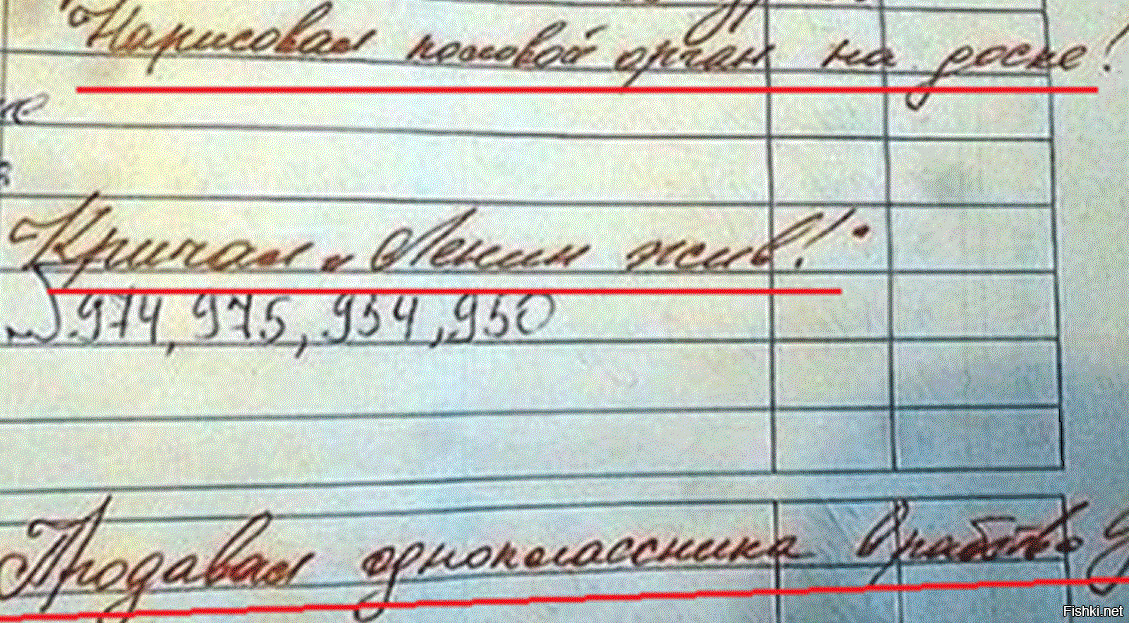 Нарисовал половой орган на доске!
Кричал „Ленин жив!"
974, 975, 954, 950
Продавал одноклассника в рабство
Fishki.net